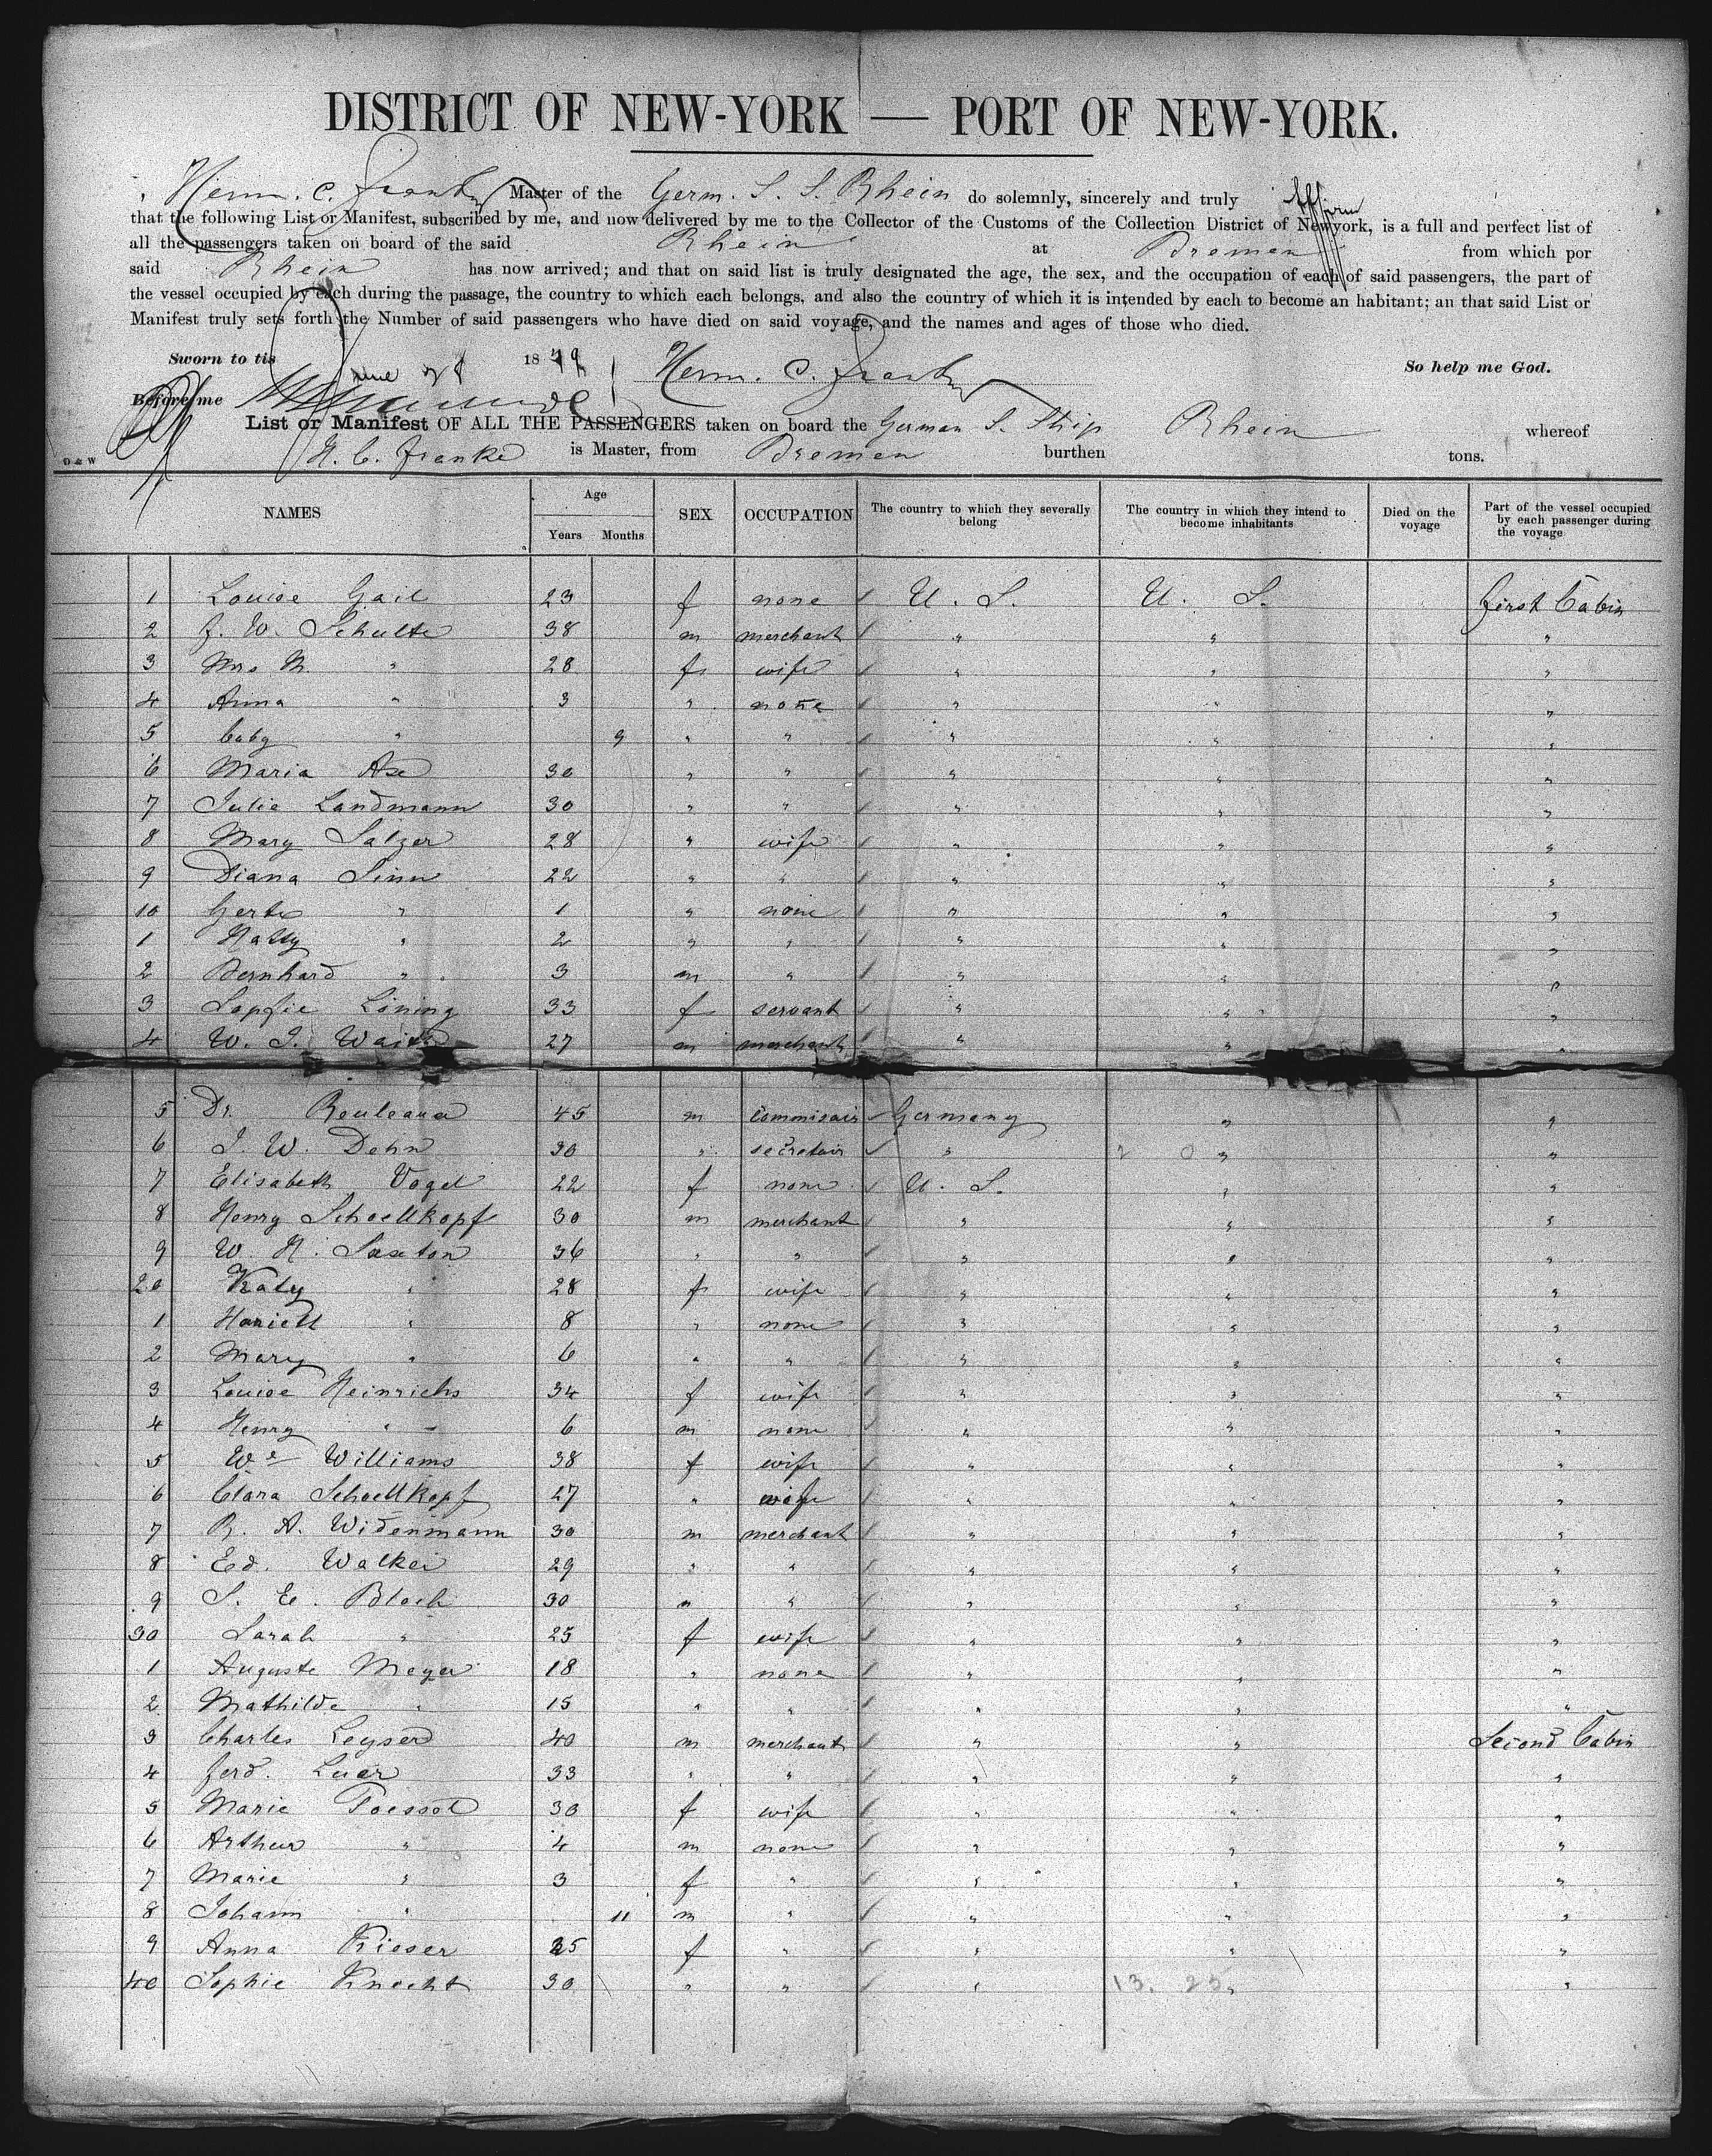 DISTRICT OF NEW-YORK — PORT OF NEW-YORK.
, Herm. C. Franke Master of the Germ. S. S. Rhein do solemnly, sincerely and truly Affirm
that the following List or Manifest, subscribed by me, and now delivered by me to the Collector of the Customs of the Collection District of Newyork, is a full and perfect list of
all the passengers taken on board of the said Rhein at Bremen from which por
said Rhein has now arrived; and that on said list is truly designated the age, the sex, and the occupation of each of said passengers, the part of
the vessel occupied by each during the passage, the country to which each belongs, and also the country of which it is intended by each to become an habitant; an that said List or
Manifest truly sets forth the Number of said passengers who have died on said voyage, and the names and ages of those who died.
Sworn to tis June 1879 Herm. C. Franke So help me God.
Before me
List or Manifest OF ALL THE PASSENGERS taken on board the German S. Ship Rhein whereof
H. C. Franke is Master, from Bremen burthen tons.
D & W
NAMES Age Years Months SEX OCCUPATION The country to which they severally belong The country in which they intend to become inhabitants Died on the voyage Part of the vessel occupied by each passenger during the voyage
1 Louise Gail 23 f none U. S. U. S. first Cabin
2 F. W. Schulte 38 m merchant " " "
3 Mrs M. " 28 f wife " " "
4 Anna " 3 " none " " "
5 baby " 9 " " " " "
6 Maria Axe 30 " " " " "
7 Julie Landmann 30 " " " " "
8 Mary Salzer 28 " wife " " "
9 Diana Sinn 22 " " " " "
10 Gerte " 1 " none " " "
1 Hatty " 2 " " " " "
2 Bernhard " 3 m " " " "
3 Sophie Löning 33 f servant " " "
4 W. J. 27 m merchant " " "
5 Dr. Reuleaux 45 m commissair Germany " "
6 J. W. Dehn 30 " secretair " " "
7 Elisabeth Vogel 22 f none U. S. " "
8 Henry Schoellkopf 30 m merchant " " "
9 W. H. Saxton 36 " " " " "
20 Katy " 28 f wife " " "
1 Hariett " 8 " none " " "
2 Mary " 6 " " " " "
3 Louise Heinrichs 34 f wife " " "
4 Henry " 6 m none " " "
5 Williams 38 f wife " " "
6 Clara Schoellkopf 27 " wife " " "
7 R. A. Widenmann 30 m merchant " " "
8 Ed. Walker 29 " " " " "
9 S. E. Bloch 30 " " " " "
30 Sarah " 25 f wife " " "
1 Auguste Meyer 18 " none " " "
2 Mathilde " 15 " " " " "
3 Charles Leyser 40 m merchant " " Second Cabin
4 Ferd. Luer 33 " " " " "
5 Marie Poessol 30 f wife " " "
6 Arthur " 4 m none " " "
7 Marie " 3 f " " " "
8 Johann " 11 m " " " "
9 Anna Kieser 25 f " " " "
40 Sophie Knecht 30 " " " 13. 25 " "